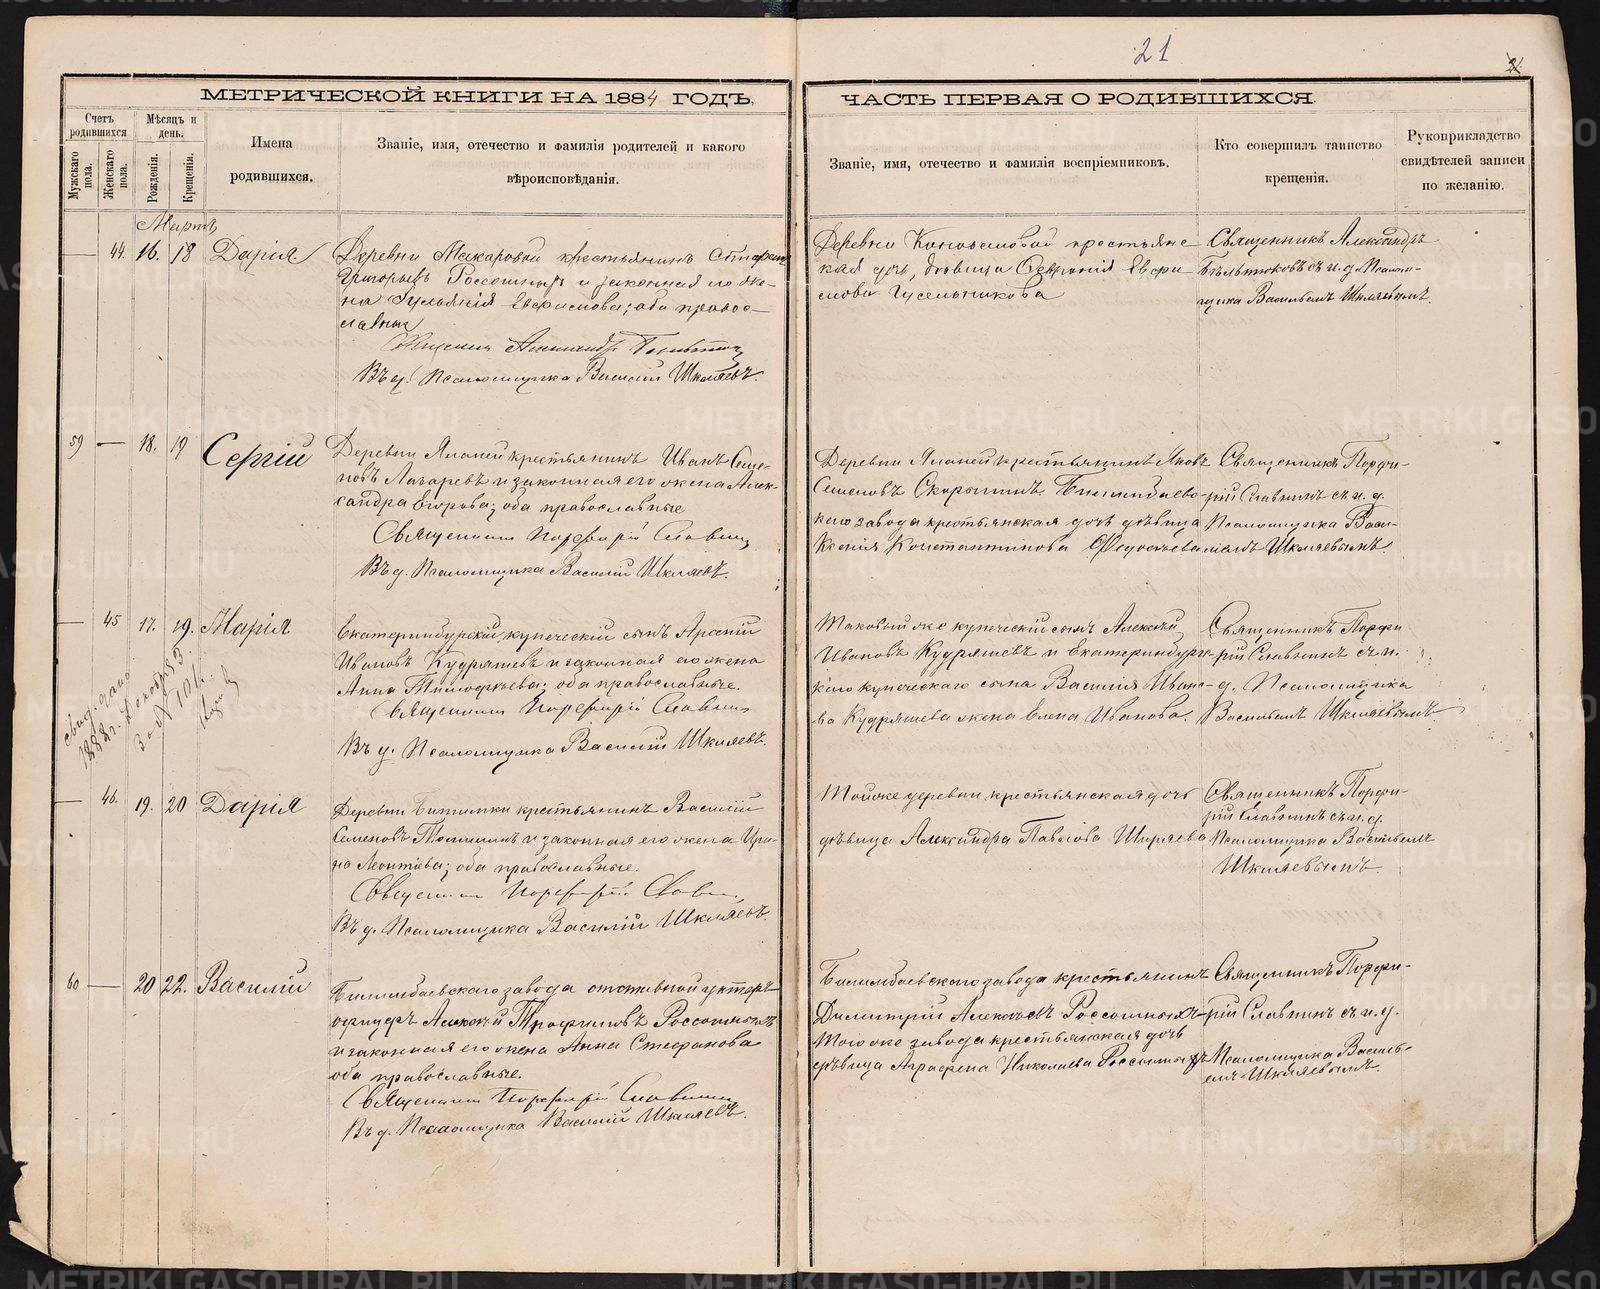 21
МЕТРИЧЕСКОЙ КНИГИ НА 1884 ГОДЪ,
ЧАСТЬ ПЕРВАЯ О РОДИВШИХСЯ.
Счетъ родившихся
Мужскаго пола.
Женскаго пола.
Мѣсяцъ и день.
Рожденія.
Крещенія.
Имена
родившихся.
Званіе, имя, отечество и фамилія родителей и какого
вѣроисповѣданія.
Званіе, имя, отечество и фамилія воспріемниковъ.
Кто совершилъ таинство
крещенія.
Рукоприкладство
свидѣтелей записи
по желанію.
Мартъ
44. 16. 18 Дарія
Деревни Макаровой крестьянинъ
Григорьевъ Россошныхъ и законная его же-
на Іуліанія Евфимова; оба правос-
лавные
Священникъ Александръ
Въ д. Псаломщика Василій Шкляевъ.
Деревни Коноваловой крестьянс-
кая дочь, дѣвица Евфи-
мова Гусельникова
Священникъ Александръ
Бѣльтюковъ съ и. д. Псалом-
щика Васильемъ Шкляевымъ.
59 — 18. 19 Сергій
Деревни крестьянинъ Иванъ Семе-
новъ Лазаревъ и законная его жена Алек-
сандра Егорова; оба православные
Священникъ Порфирій Славнинъ
Въ д. Псаломщика Василій Шкляевъ.
Деревни крестьянинъ Яковъ
Семеновъ Скорынинъ. Билимбаевс-
каго завода крестьянская дочь дѣвица
Ксенія Константинова
Священникъ Порфи-
рій Славнинъ съ и. д.
Псаломщика Васи-
льемъ Шкляевымъ.
— 45 17. 19. Марія
Екатеринбургскій купеческій сынъ Арсеній
Ивановъ Кудряшевъ и законная его жена
Анна Тимофѣева; оба православные.
Священникъ Порфирій Славнинъ
Въ д. Псаломщика Василій Шкляевъ.
Таковый же купеческій сынъ Алексѣй
Ивановъ Кудряшевъ и Екатеринбургс-
каго купеческаго сына Василія Ивано-
ва Кудряшева жена Елена Иванова.
Священникъ Порфи-
рій Славнинъ съ и.
д. Псаломщика
Васильемъ Шкляевымъ.
— 46. 19. 20 Дарія
Деревни Битимки крестьянинъ Василій
Семеновъ и законная его жена Ири-
на Леонтіева; оба православные.
Священникъ Порфирій Славнинъ
Въ д. Псаломщика Василій Шкляевъ.
Той же деревни, крестьянская дочь
дѣвица Александра Павлова Ширяева
Священникъ Порфи-
рій Славнинъ съ и.д.
Псаломщика Васильемъ
Шкляевымъ.
60 — 20 22. Василій
Билимбаевскаго завода отставной унтеръ-
офицеръ Алексѣй Трофимовъ Россошныхъ
и законная его жена Анна Стефанова
оба православные.
Священникъ Порфирій Славнинъ
Въ д. Псаломщика Василій Шкляевъ.
Билимбаевскаго завода крестьянинъ
Димитрій Алексѣевъ Россошныхъ
Того же завода крестьянская дочь
дѣвица Аграфена Николаева Россошныхъ
Священникъ Порфи-
рій Славнинъ съ и. д.
Псаломщика Василь-
емъ Шкляевымъ.
METRIKI.GASO-URAL.RU